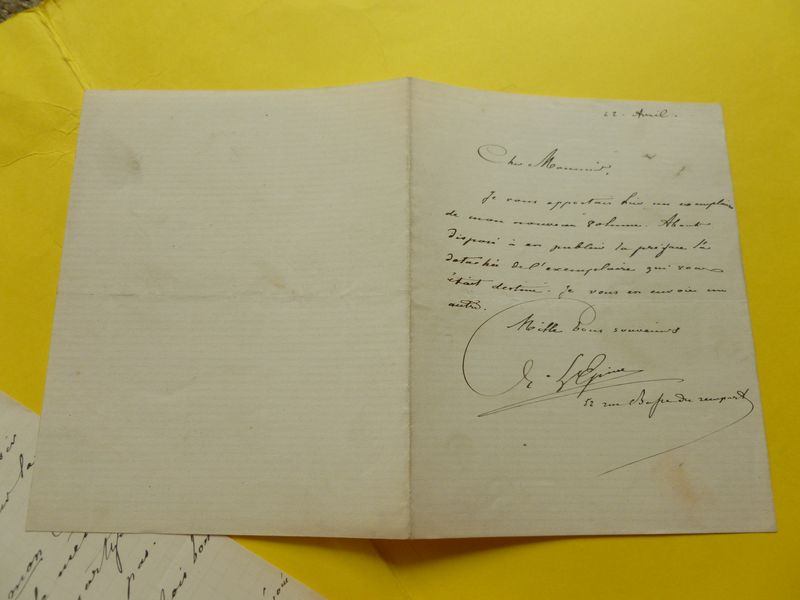 22. Avril.
Cher Monsieur,
Je vous apportais hier un exemplaire
de mon nouveau volume. About
disposé à en publier la préface l'a
détachée de l'exemplaire qui vous
était destiné. Je vous en envoie un
autre.
Mille bons souvenirs
L'Epine
52 rue Basse du rempart
pas.